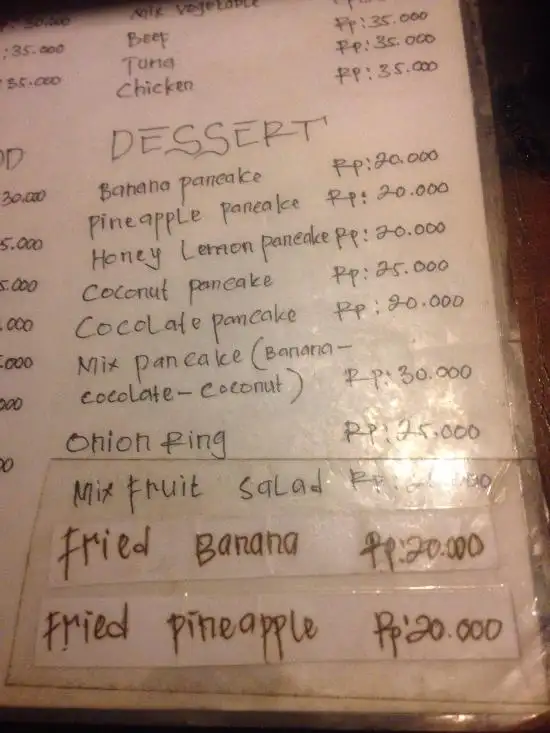 Mix vegetable
: 35.000 Beef Rp: 35.000
35.000 Tuna Rp: 35.000
Chicken Rp: 35.000
DESSERT
30.000 Banana pancake Rp: 20.000
5.000 Pineapple pancake Rp: 20.000
5.000 Honey Lemon pancake Rp: 20.000
.000 Coconut pancake Rp: 25.000
.000 Cocolate pancake Rp: 20.000
000 Mix pancake (Banana-
cocolate-coconut) Rp: 30.000
Onion Ring Rp: 25.000
Mix Fruit Salad
Fried Banana Rp: 20.000
Fried pineapple Rp: 20.000